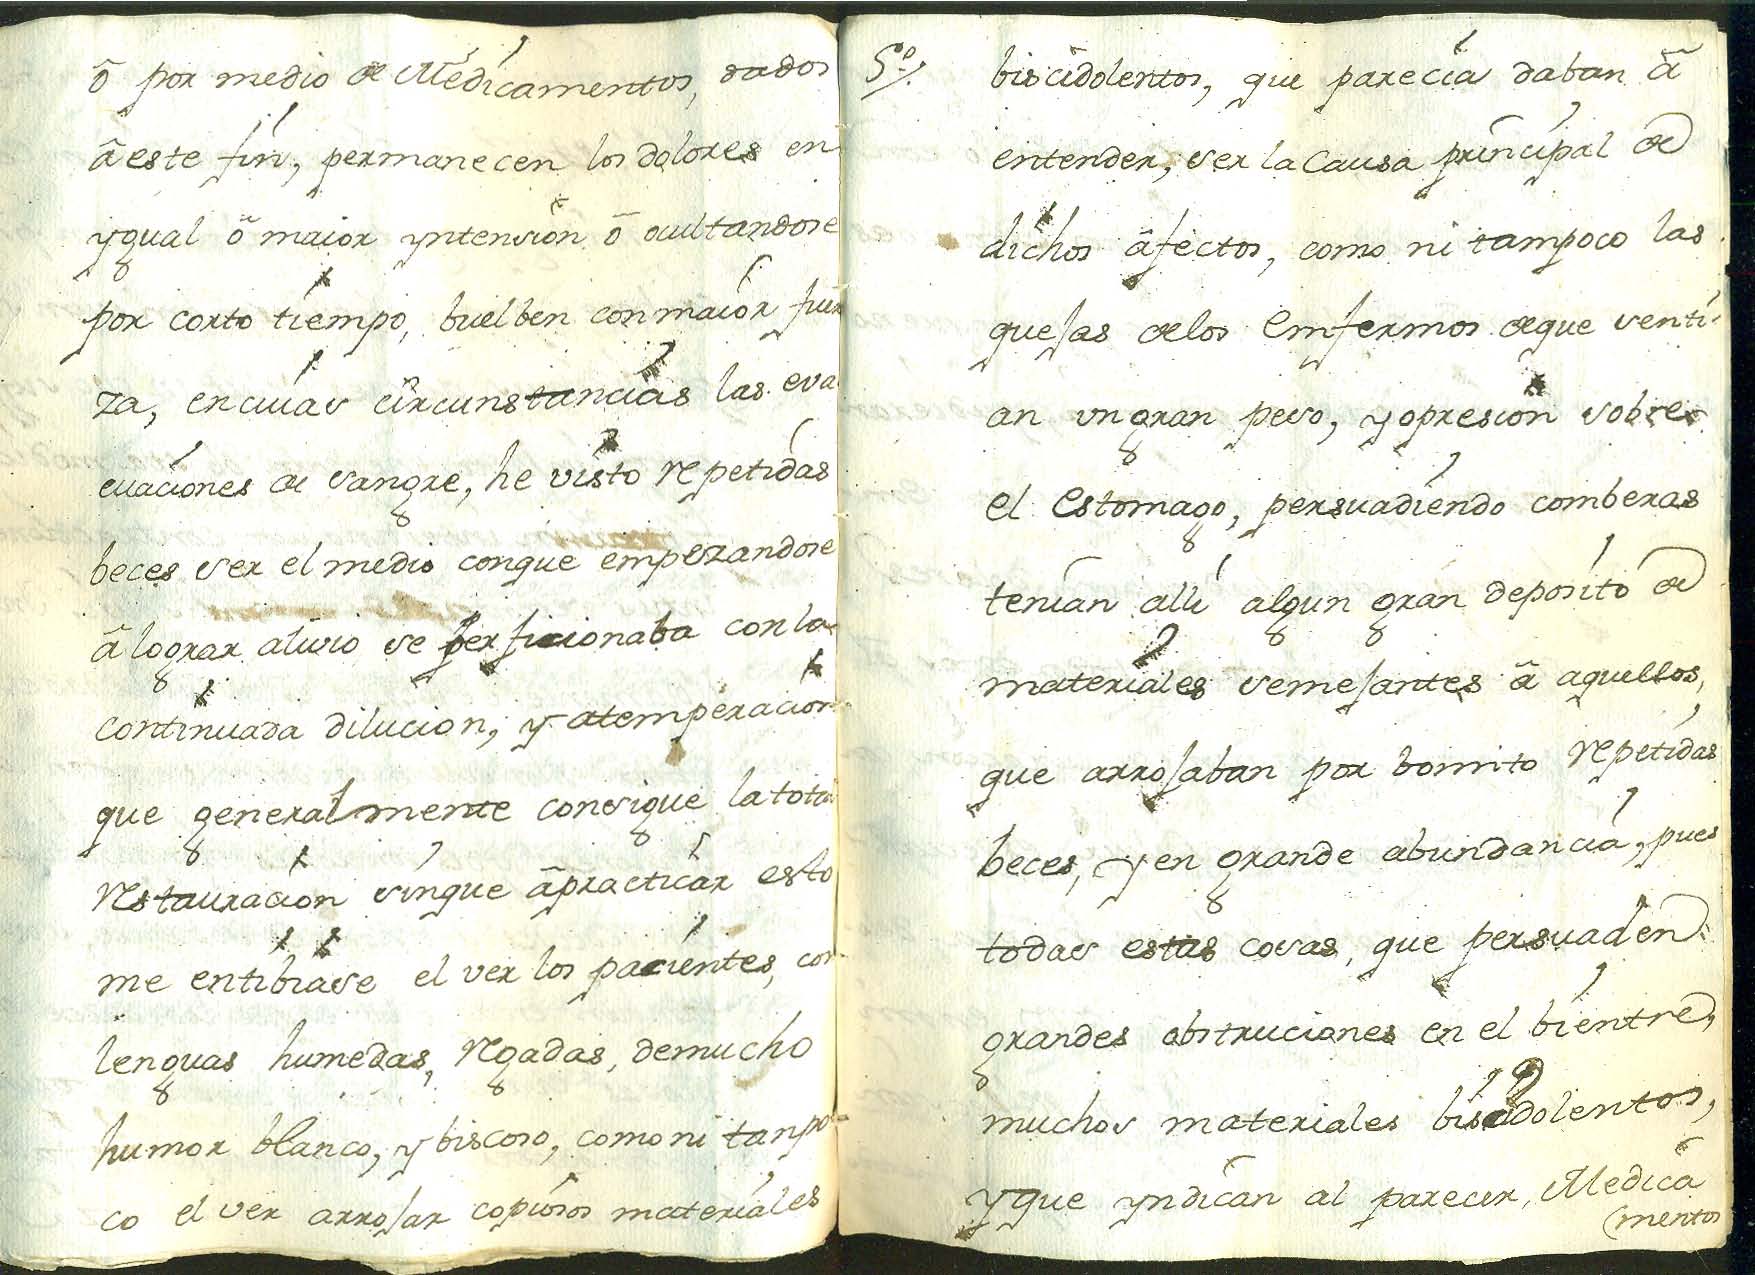 õ por medio de Medicamentos, dados
ã este fin, permanecen los dolores en
ygual õ maior yntension õ ocultandose
por corto tiempo, buelben con maior fuer
za, en cuias circunstancias las eva
cuaciones de sangre, he visto repetidas
beces ser el medio conque empezandose
ã lograr alivio se perficionaba con la
continuada dilucion, y atemperacion
que generalmente consigue la total
restauracion sinque ã practicar esto
me entibiase el ver los pacientes, con
lenguas humedas, regadas, demucho
humor blanco, y biscoso, como ni tanpo-
co el ver arrojar copiosos materiales
5º/.
biscidolentos, que parecia daban ã
entender, ser la Causa principal de
dichos ãfectos, como ni tampoco las
quejas delos Emfermos deque senti-
an un gran peso, y opresion sobre
el estomago, persuadiendo comberas
tenian alli algun gran deposito de
materiales semejantes ã aquellos,
que arrojaban por bomito repetidas
beces, y en grande abundancia, pues
todas estas cosas, que persuaden
grandes obstruciones en el bientre,
muchos materiales biscidolentos,
y que yndican al parecer, Medica
(mentos